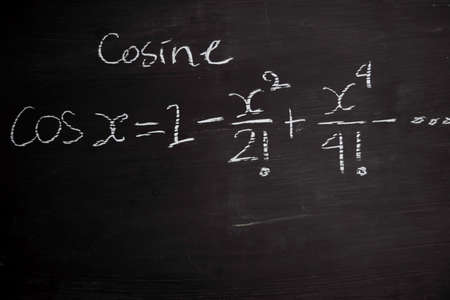 Cosine
cos x = 1 - x²/2! + x⁴/4! - ...